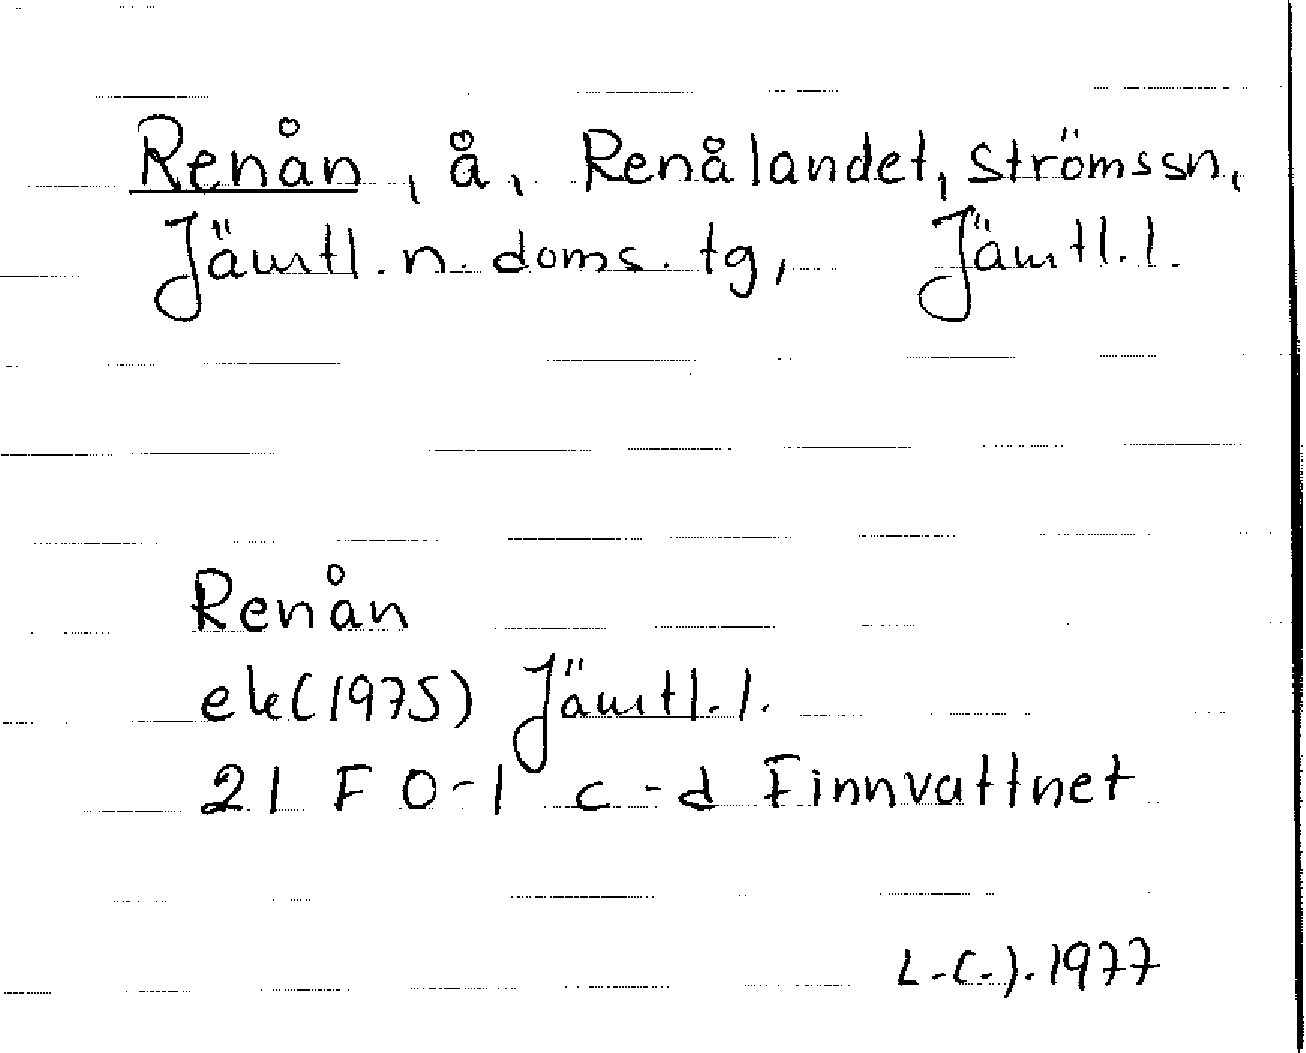 Renån, å, Renålandet, Ströms sn,
Jämtl. n. doms. tg, Jämtl. l.
Renån
ek (1975) Jämtl. l.
21 F 0-1 c-d Finnvattnet
L.-C. J. 1977